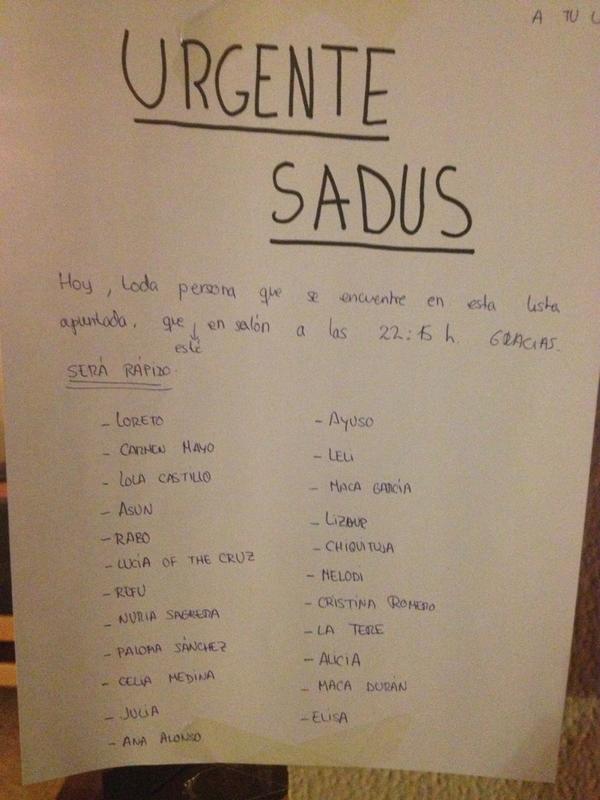 A TU
URGENTE
SADUS
Hoy, toda persona que se encuentre en esta lista
apuntada, que esté en salón a las 22:15 h. GRACIAS.
SERÁ RÁPIDO.
- LORETO
- CARMEN MAYO
- LOLA CASTILLO
- ASUN
- RABO
- LUCIA OF THE CRUZ
- REFU
- NURIA SAGREDA
- PALOMA SÁNCHEZ
- CELIA MEDINA
- JULIA
- ANA ALONSO
- AYUSO
- LELI
- MACA GARCÍA
- LIZAUR
- CHIQUITUJA
- MELODI
- CRISTINA ROMERO
- LA TERE
- ALICIA
- MACA DURÁN
- ELISA